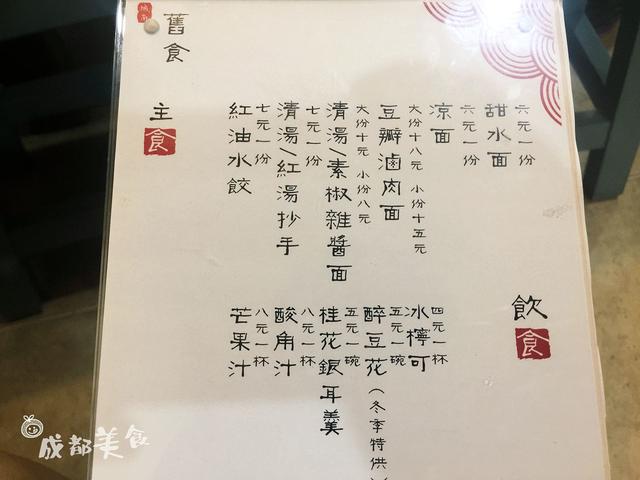 舊食
主食
紅油水餃
七元一份
清湯/紅湯抄手
七元一份
清湯/素椒雜醬面
大份十元 小份八元
豆瓣滷肉面
大份十八元 小份十五元
涼面
六元一份
甜水面
六元一份
飲食
芒果汁
八元一杯
酸角汁
八元一杯
桂花銀耳羹
五元一碗
醉豆花(冬季特供)
五元一碗
冰檸可
四元一杯
成都美食